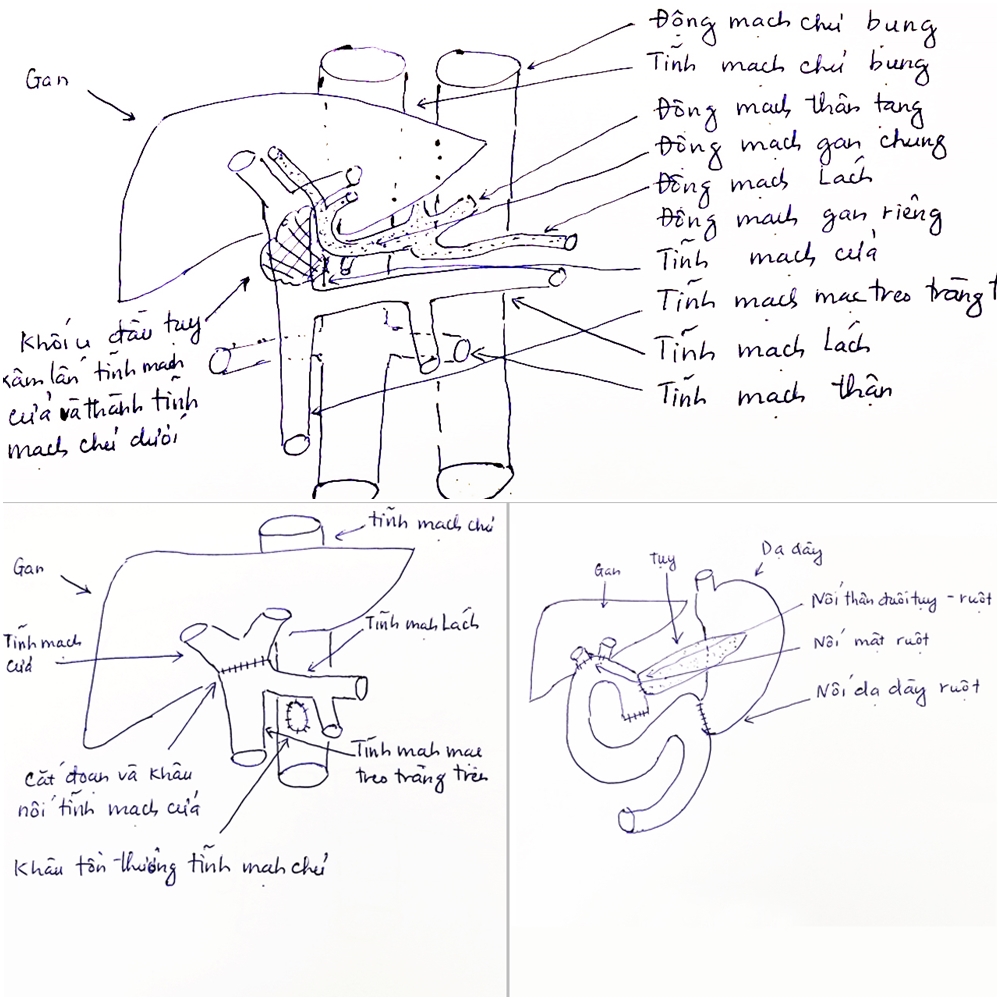 Động mạch chủ bụng
Tĩnh mạch chủ bụng
Động mạch thân tạng
Động mạch gan chung
Động mạch Lách
Động mạch gan riêng
Tĩnh mạch cửa
Tĩnh mạch mạc treo tràng t
Tĩnh mạch Lách
Tĩnh mạch thận
Gan
Khối u đầu tụy
xâm lấn tĩnh mạch
cửa và thành tĩnh
mạch chủ dưới
tĩnh mạch chủ
Gan
Tĩnh mạch
cửa
Tĩnh mạh Lách
Tĩnh mạh mạc
treo tràng trên
Cắt đoạn và khâu
nối tĩnh mạch cửa
Khâu tổn thương tĩnh mạh chủ
Gan
Tụy
Dạ dày
Nối thân đuôi tụy - ruột
Nối mật ruột
Nối dạ dày ruột